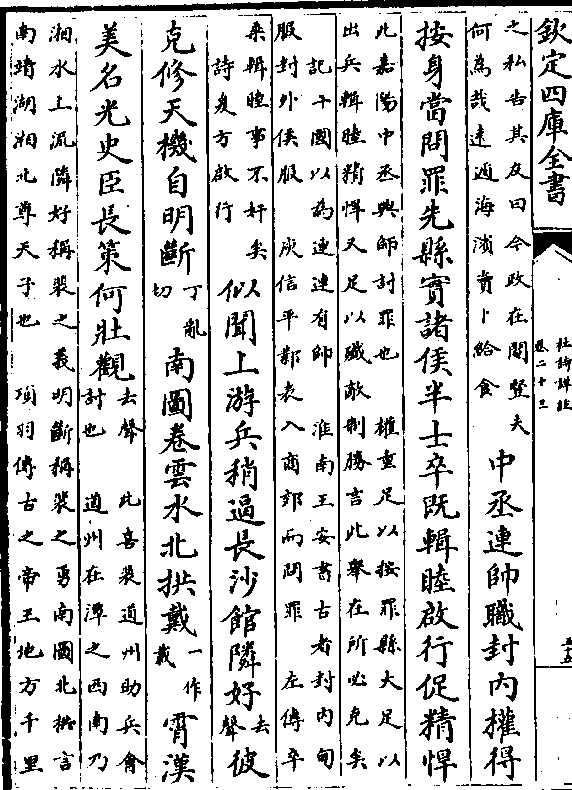 欽定四庫全書
杜詩詳註
卷二十三
之私告其友曰今政在閽豎夫
何為哉遂遁海濱賣卜給食
中丞連帥職封內權得
按身當問罪先縣實諸侯半士卒既輯睦啟行促精悍
此嘉陽中丞興師討罪也 權重足以按罪縣大足以
出兵輯睦精悍又足以殲敵制勝言此舉在所必克矣
記十國以為連連有帥 淮南王安書古者封內甸
服封外侯服 庾信平鄴表入商郊而問罪 左傳卒
乘輯睦事不奸矣
詩爰方啟行
似聞上游兵稍逼長沙館隣好去聲彼
克修天機自明斷丁亂切南圖卷雲水北拱戴一作戴霄漢
美名光史臣長策何壯觀
去聲 此喜裴道州助兵會
討也 道州在潭之西南乃
湘水上流隣好稱裴之義明斷稱裴之勇南圖北拱言
南靖湖湘北尊天子也 項羽傳古之帝王地方千里